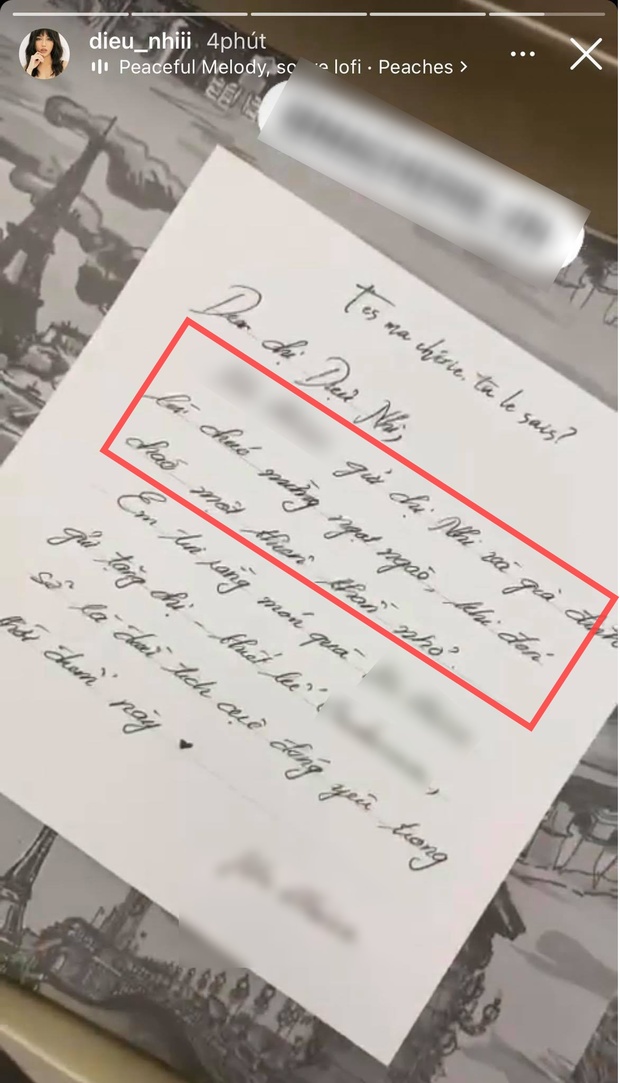 dieu_nhiii 4phút
Peaceful Melody, so e lofi · Peaches >
T'es ma chérie, tu le sais?
Dear chị Diệu Nhi,
gửi chị Nhi và gia đình
lời chúc mừng ngọt ngào, khi đón
chào một thiên thần nhỏ.
Em tin rằng món quà
gửi tặng chị -
sẽ là chủ tích cực đáng yêu trong
thời điểm này ♥